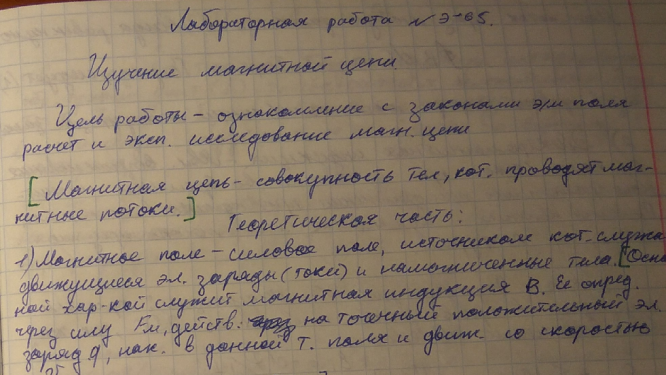 Лабораторная работа № Э-65.
Изучение магнитной цепи
Цель работы - ознакомление с законами эл/м поля
расчет и эксп. исследование магн. цепи
[Магнитная цепь - совокупность тел, кот. проводят маг-
нитные потоки.]
Теоретическая часть:
1) Магнитное поле - силовое поле, источником кот. служа
движущиеся эл. заряды (токи) и намагниченные тела. [Осно
ной хар-кой служит магнитная индукция B. Ее опред.
чрез силу Fм, действ. на точечный положительный эл.
заряд q, нах. в данной т. поля и движ. со скоростью